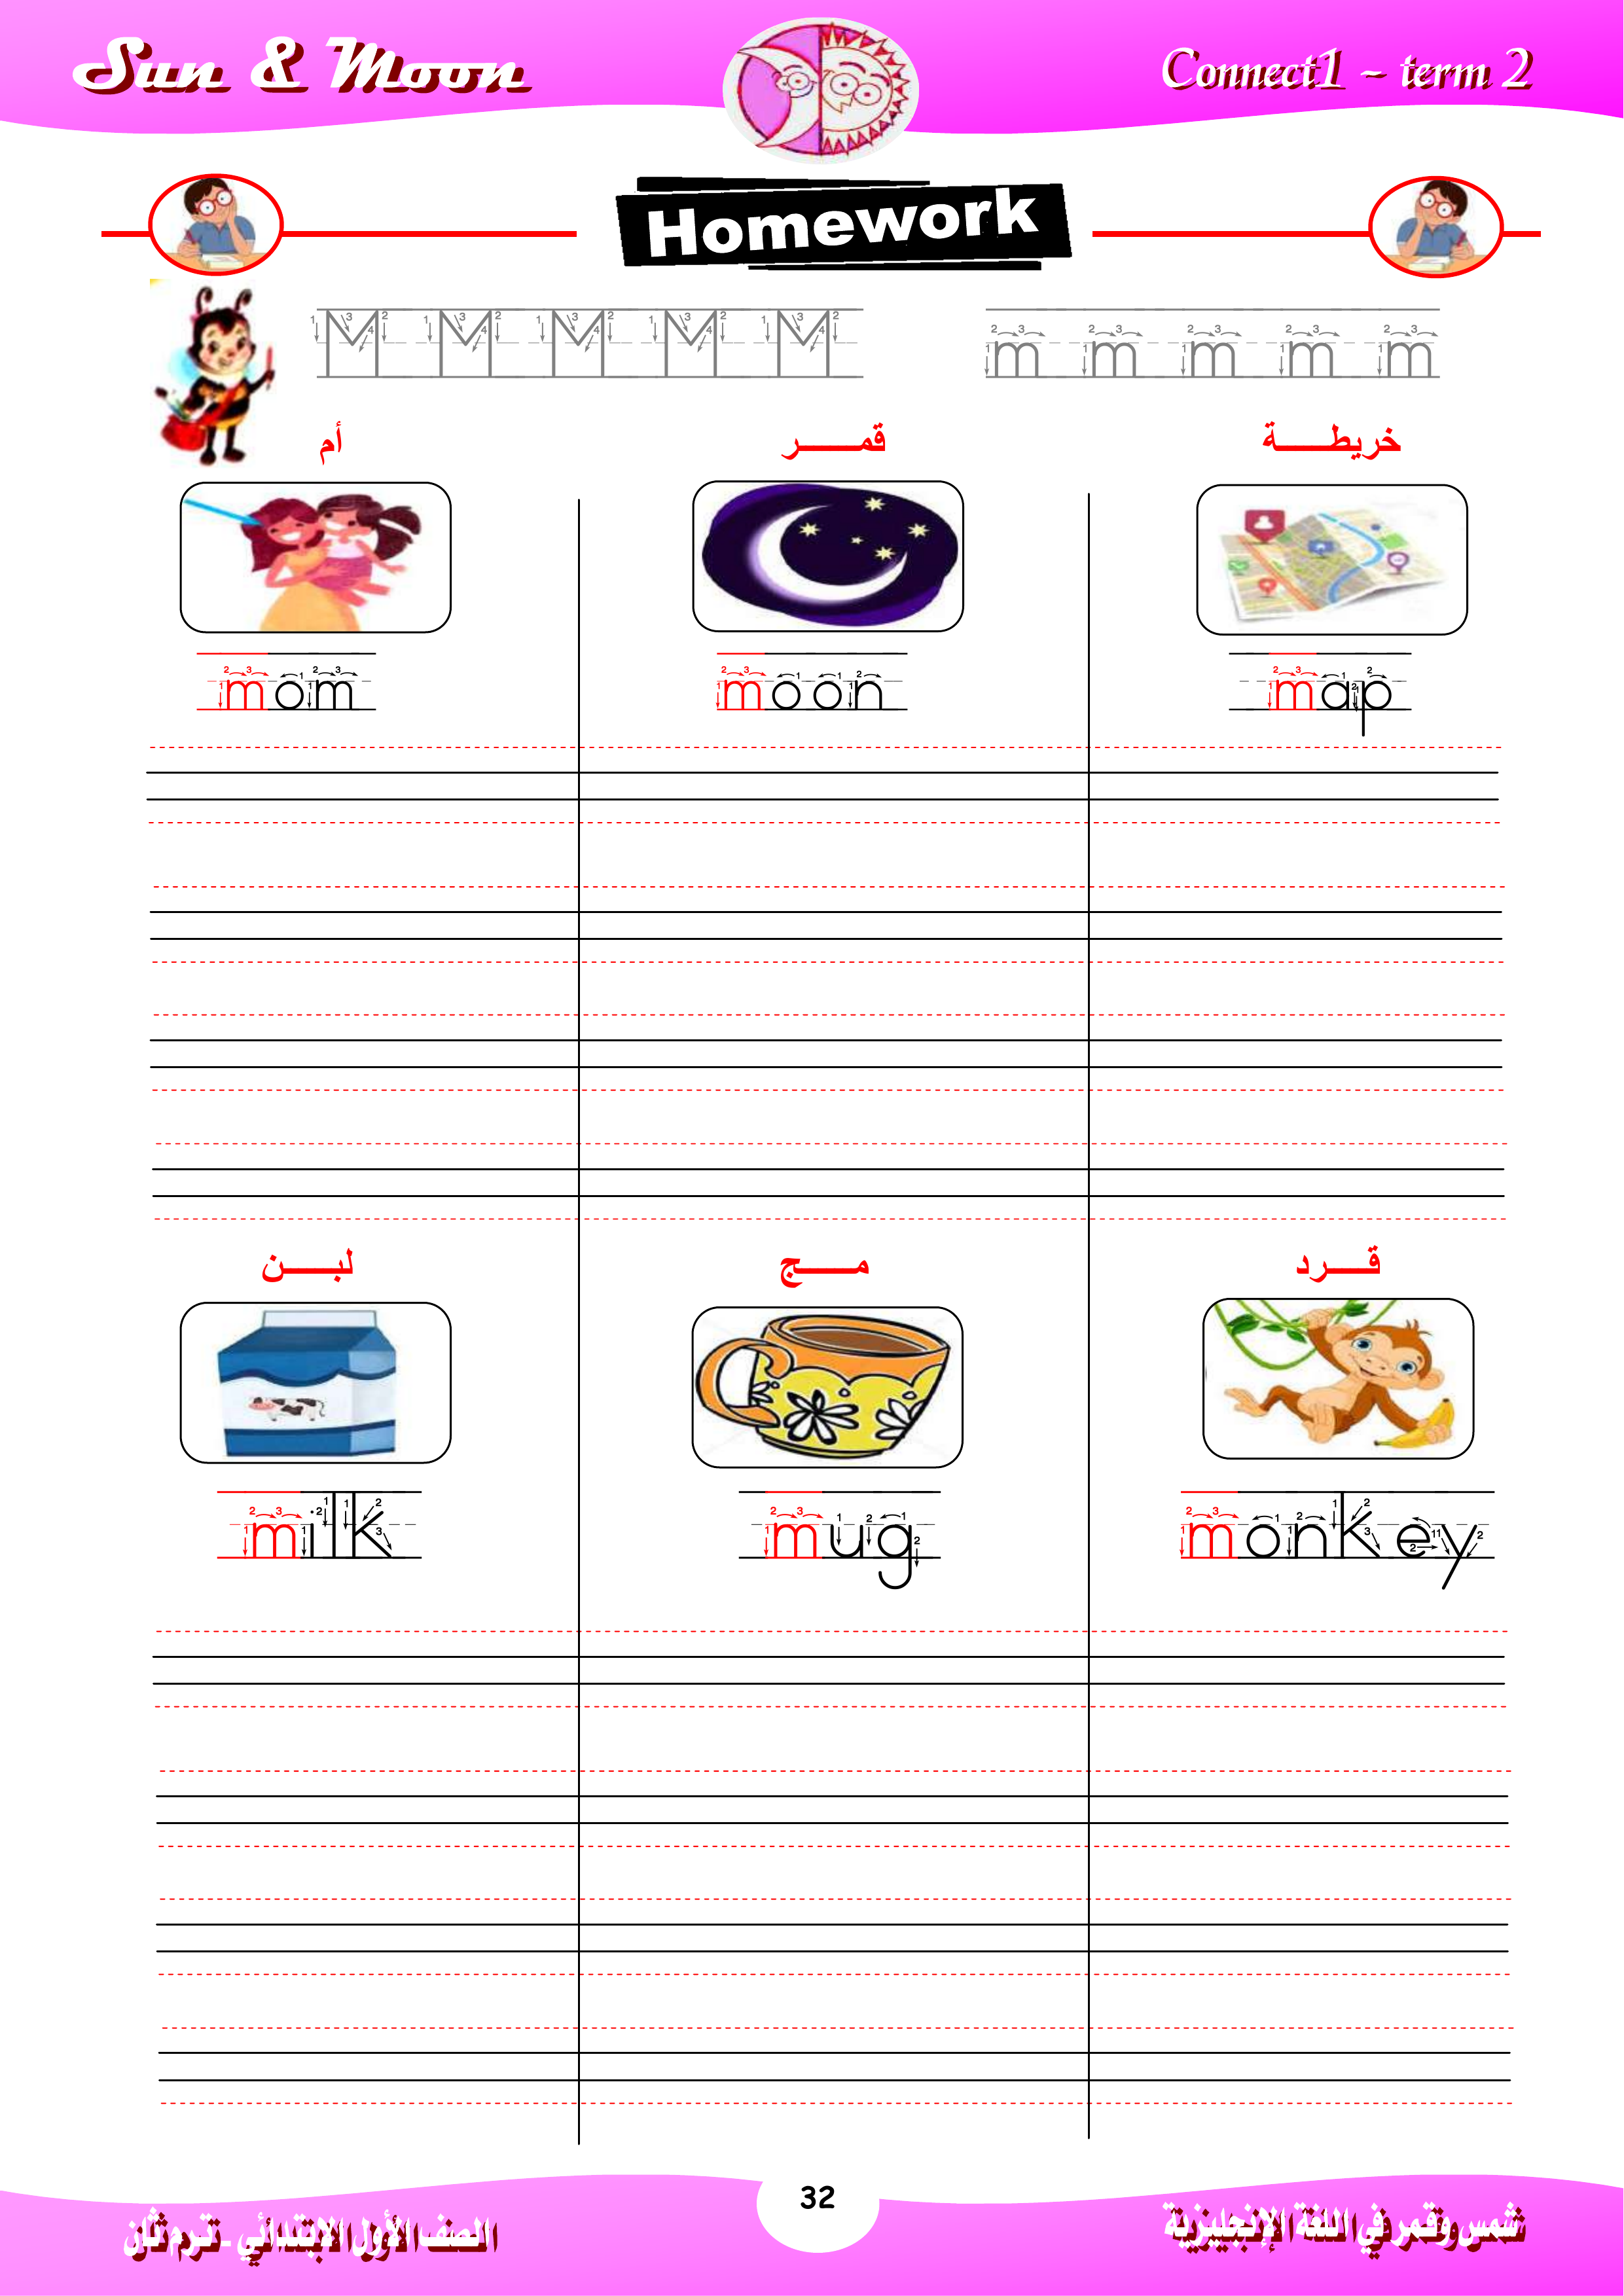 Sun & Moon
Connect1 – term 2
Homework
M M M M M
m m m m m
أم
قمـــــر
خريطـــــة
mom
moon
map
لبـــــن
مـــــج
قـــــرد
milk
mug
monkey
32
الصف الأول الابتدائي - ترم ثان
شمس وقمر في اللغة الإنجليزية